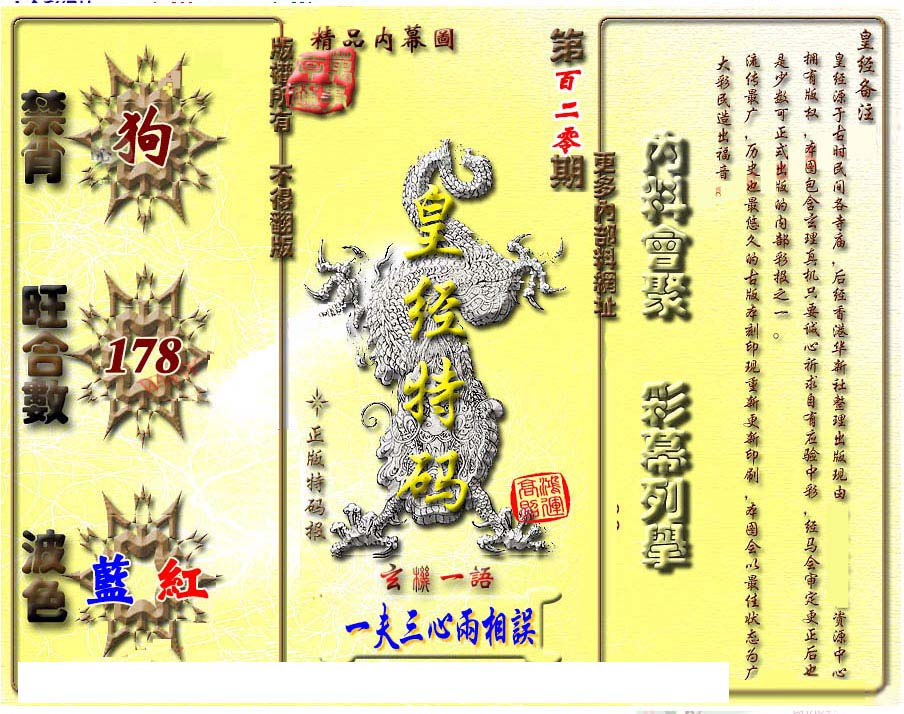 精品内幕圖
版權所有 不得翻版
第百二零期
更多內部料網址
禁肖
狗
旺合數
178
波色
藍 紅
皇经特码
正版特码报
鴻運高照
玄機一語
一夫三心兩相誤
內料會聚 彩幕列舉
皇经备注
皇经源于古时民间各寺庙,后经香港华新社整理出版现由 资源中心
拥有版权,本图包含玄理真机只要诚心祈求自有应验中彩,经马会审定更正后也
是少数可正式出版的内部彩报之一。
流传最广,历史也最悠久的古版本刻印现重新更新印刷,本图会以最佳状态为广
大彩民造出福音